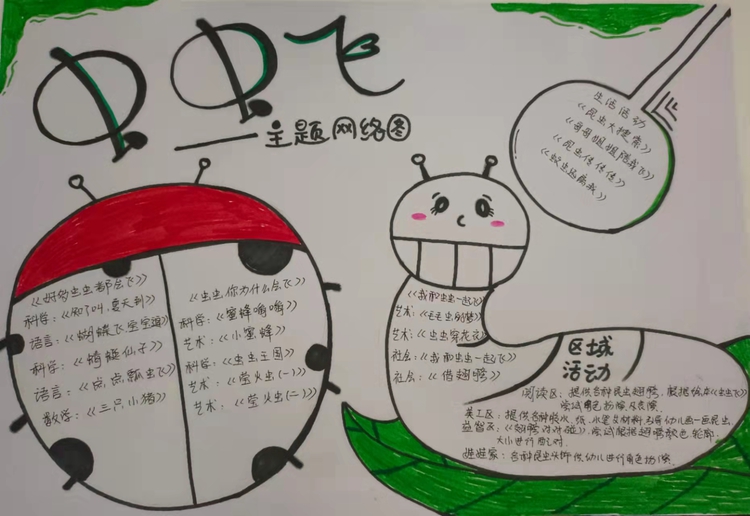 虫虫飞
——主题网络图
生活活动
《昆虫大搜索》
《哥哥姐姐陪我飞》
《昆虫传传传》
《蚊虫远离我》
《好多虫虫都会飞》
科学:《知了叫,夏天到》
语言:《蝴蝶飞宝宝追》
科学:《蜻蜓仙子》
语言:《点点瓢虫飞》
数学:《三只小猪》
《虫虫,你为什么会飞》
科学:《蜜蜂嗡嗡》
艺术:《小蜜蜂》
科学:《虫虫王国》
艺术:《萤火虫(一)》
艺术:《萤火虫(二)》
《我和虫虫一起飞》
艺术:《毛毛虫的梦》
艺术:《虫虫穿花衣》
社会:《我和虫虫一起飞》
社会:《借翅膀》
区域
活动
阅读区:提供各种昆虫翅膀,根据绘本《虫虫飞》
尝试角色扮演及表演.
美工区:提供各种胶水、纸、水笔等材料引导幼儿画一画昆虫.
益智区:《翅膀对对碰》,尝试根据翅膀颜色、轮廓、
大小进行配对.
娃娃家:各种昆虫头饰供幼儿进行角色扮演.